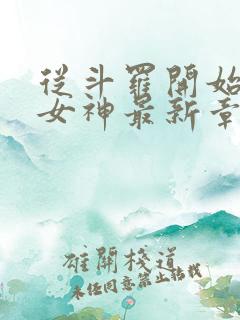 從斗羅開始
女神最新章
雄關棧道
未經同意禁止轉載